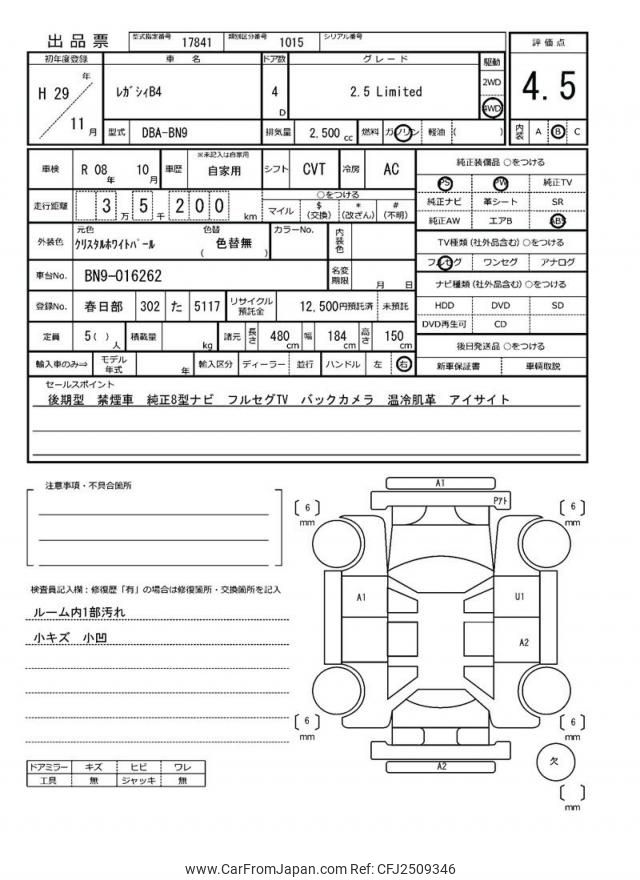 出品票 型式指定番号 17841 類別区分番号 1015 シリアル番号
評価点
4.5
内装 A B C
初年度登録 車名 ドア数 グレード 駆動
H 29 年 11 月
レガシィB4 4 D 2.5 Limited 2WD 4WD
型式 DBA-BN9 排気量 2,500 cc 燃料 ガソリン 軽油 ( )
車検 R 08 年 10 月 車歴 ※未記入は自家用 自家用 シフト CVT 冷房 AC
走行距離 3 万 5 千 2 0 0 km
○をつける
マイル $ (交換) * (改ざん) # (不明)
外装色 元色 クリスタルホワイトパール 色替 ( 色替無 ) カラーNo. 内装色
車台No. BN9-016262 名変期限 月 日
登録No. 春日部 302 た 5117 リサイクル預託金 12,500円預託済 未預託
定員 5( ) 人 積載量 kg 諸元 長さ 480 cm 幅 184 cm 高さ 150 cm
輸入車のみ⇒ モデル年式 年 輸入区分 ディーラー 並行 ハンドル 左 右
純正装備品 ○をつける
PS PW 純正TV
純正ナビ 革シート SR
純正AW エアB ABS
TV種類 (社外品含む) ○をつける
フルセグ ワンセグ アナログ
ナビ種類 (社外品含む) ○をつける
HDD DVD SD
DVD再生可 CD
後日発送品 ○をつける
新車保証書 車輌取説
セールスポイント
後期型 禁煙車 純正8型ナビ フルセグTV バックカメラ 温冷肌革 アイサイト
注意事項・不具合箇所
検査員記入欄：修復歴「有」の場合は修復箇所・交換箇所を記入
ルーム内1部汚れ
小キズ 小凹
ドアミラー キズ ヒビ ワレ
工具 無 ジャッキ 無
A1
Pアト
6 mm
6 mm
A1
U1
A2
6 mm
6 mm
A2
欠
mm
www.CarFromJapan.com Ref: CFJ2509346